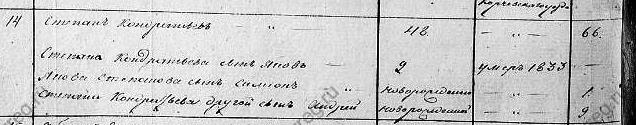 14 Степанъ Кондратьевъ — „ 48. — „ — 66.
Степана Кондратьева сынъ Яковъ — 9 умеръ 1833 — „ —
Якова Степанова сынъ „ новорожденный — „ — 1
Степана Кондратьева другой сынъ Андрей новорожденный — „ — 9